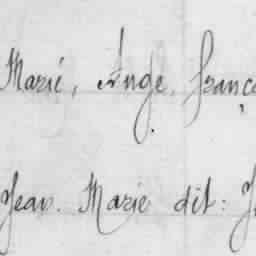 Marié, Ange, franç
Jean. Marie dit: J